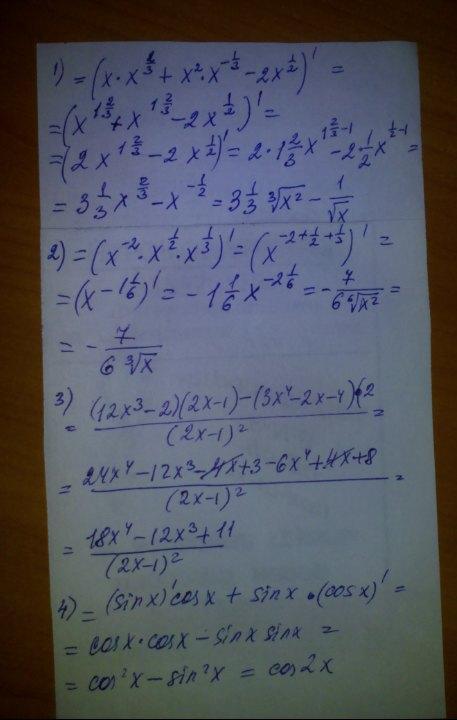 1) = (x·x^{2/3} + x²·x^{-1/3} - 2x^{1/2})' =
= (x^{1 2/3} + x^{1 2/3} - 2x^{1/2})' =
= (2x^{1 2/3} - 2x^{1/2})' = 2·1 2/3 x^{1 2/3 - 1} - 2·1/2 x^{1/2 - 1} =
= 3 1/3 x^{2/3} - x^{-1/2} = 3 1/3 ∛x² - 1/√x
2) = (x^{-2}·x^{1/2}·x^{1/3})' = (x^{-2+1/2+1/3})' =
= (x^{-1 1/6})' = -1 1/6 x^{-2 1/6} = - 7/(6 ⁶√x²) =
= - 7/(6 ∛x)
3) = ((12x³-2)(2x-1)-(3x⁴-2x-4)·2)/(2x-1)² =
= (24x⁴-12x³-4x+3-6x⁴+4x+8)/(2x-1)² =
= (18x⁴-12x³+11)/(2x-1)²
4) = (sinx)'cosx + sinx·(cosx)' =
= cosx·cosx - sinx sinx =
= cos²x - sin²x = cos2x